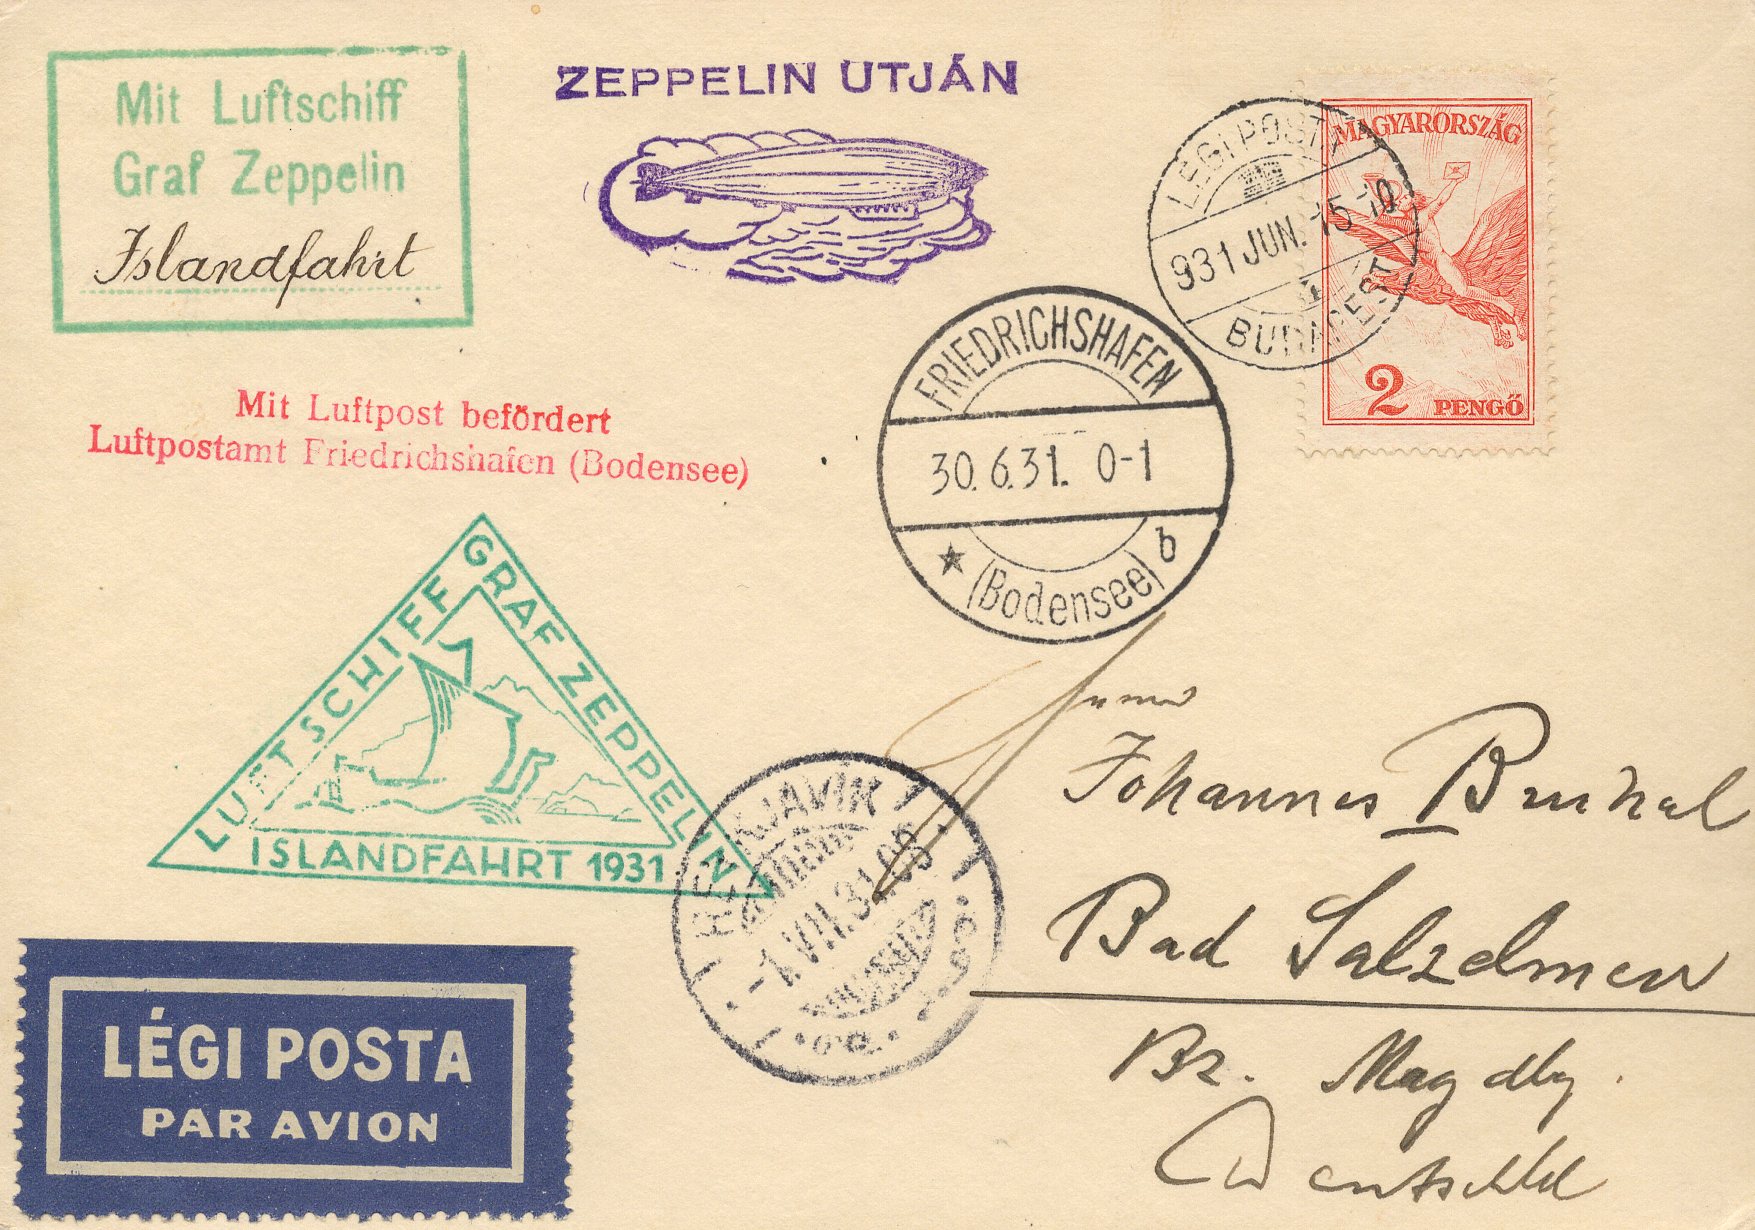 Mit Luftschiff
Graf Zeppelin
Islandfahrt
ZEPPELIN UTJÁN
LÉGI POSTA
931 JUN. 15-10
BUDAPEST
MAGYARORSZÁG
2 PENGŐ
FRIEDRICHSHAFEN
30.6.31. 0-1
b
(Bodensee)
Mit Luftpost befördert
Luftpostamt Friedrichshafen (Bodensee)
LUFTSCHIFF GRAF ZEPPELIN
ISLANDFAHRT 1931
REYKJAVÍK
-1.VII.31.
Johannes
Bad Salzelmen
Bz. Magdbg.
Deutschld
LÉGI POSTA
PAR AVION